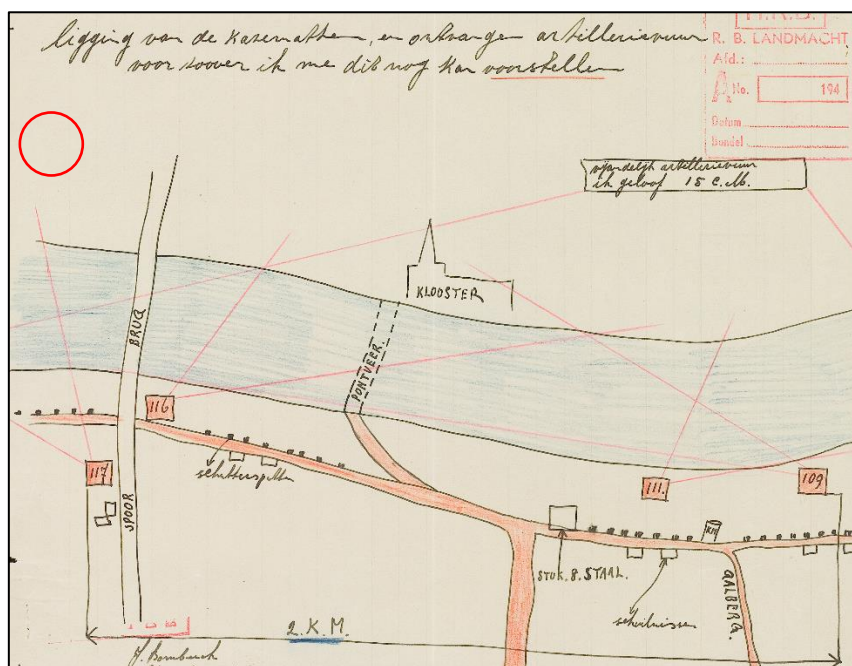 ligging van de kazematten, en ontvangen artillerievuur
voor zoover ik me dit nog kan voorstellen
H.R.B.
R. B. LANDMACHT
Afd.:
A No. 194
Datum
Bundel
vijandelijk artillerievuur
ik geloof 15 c.M.
KLOOSTER
BRUG
PONTVEER.
116
117
schuttersputten
111.
109
SPOOR
STUK. 8. STAAL.
schuilnissen
GALBERG.
2. K. M.